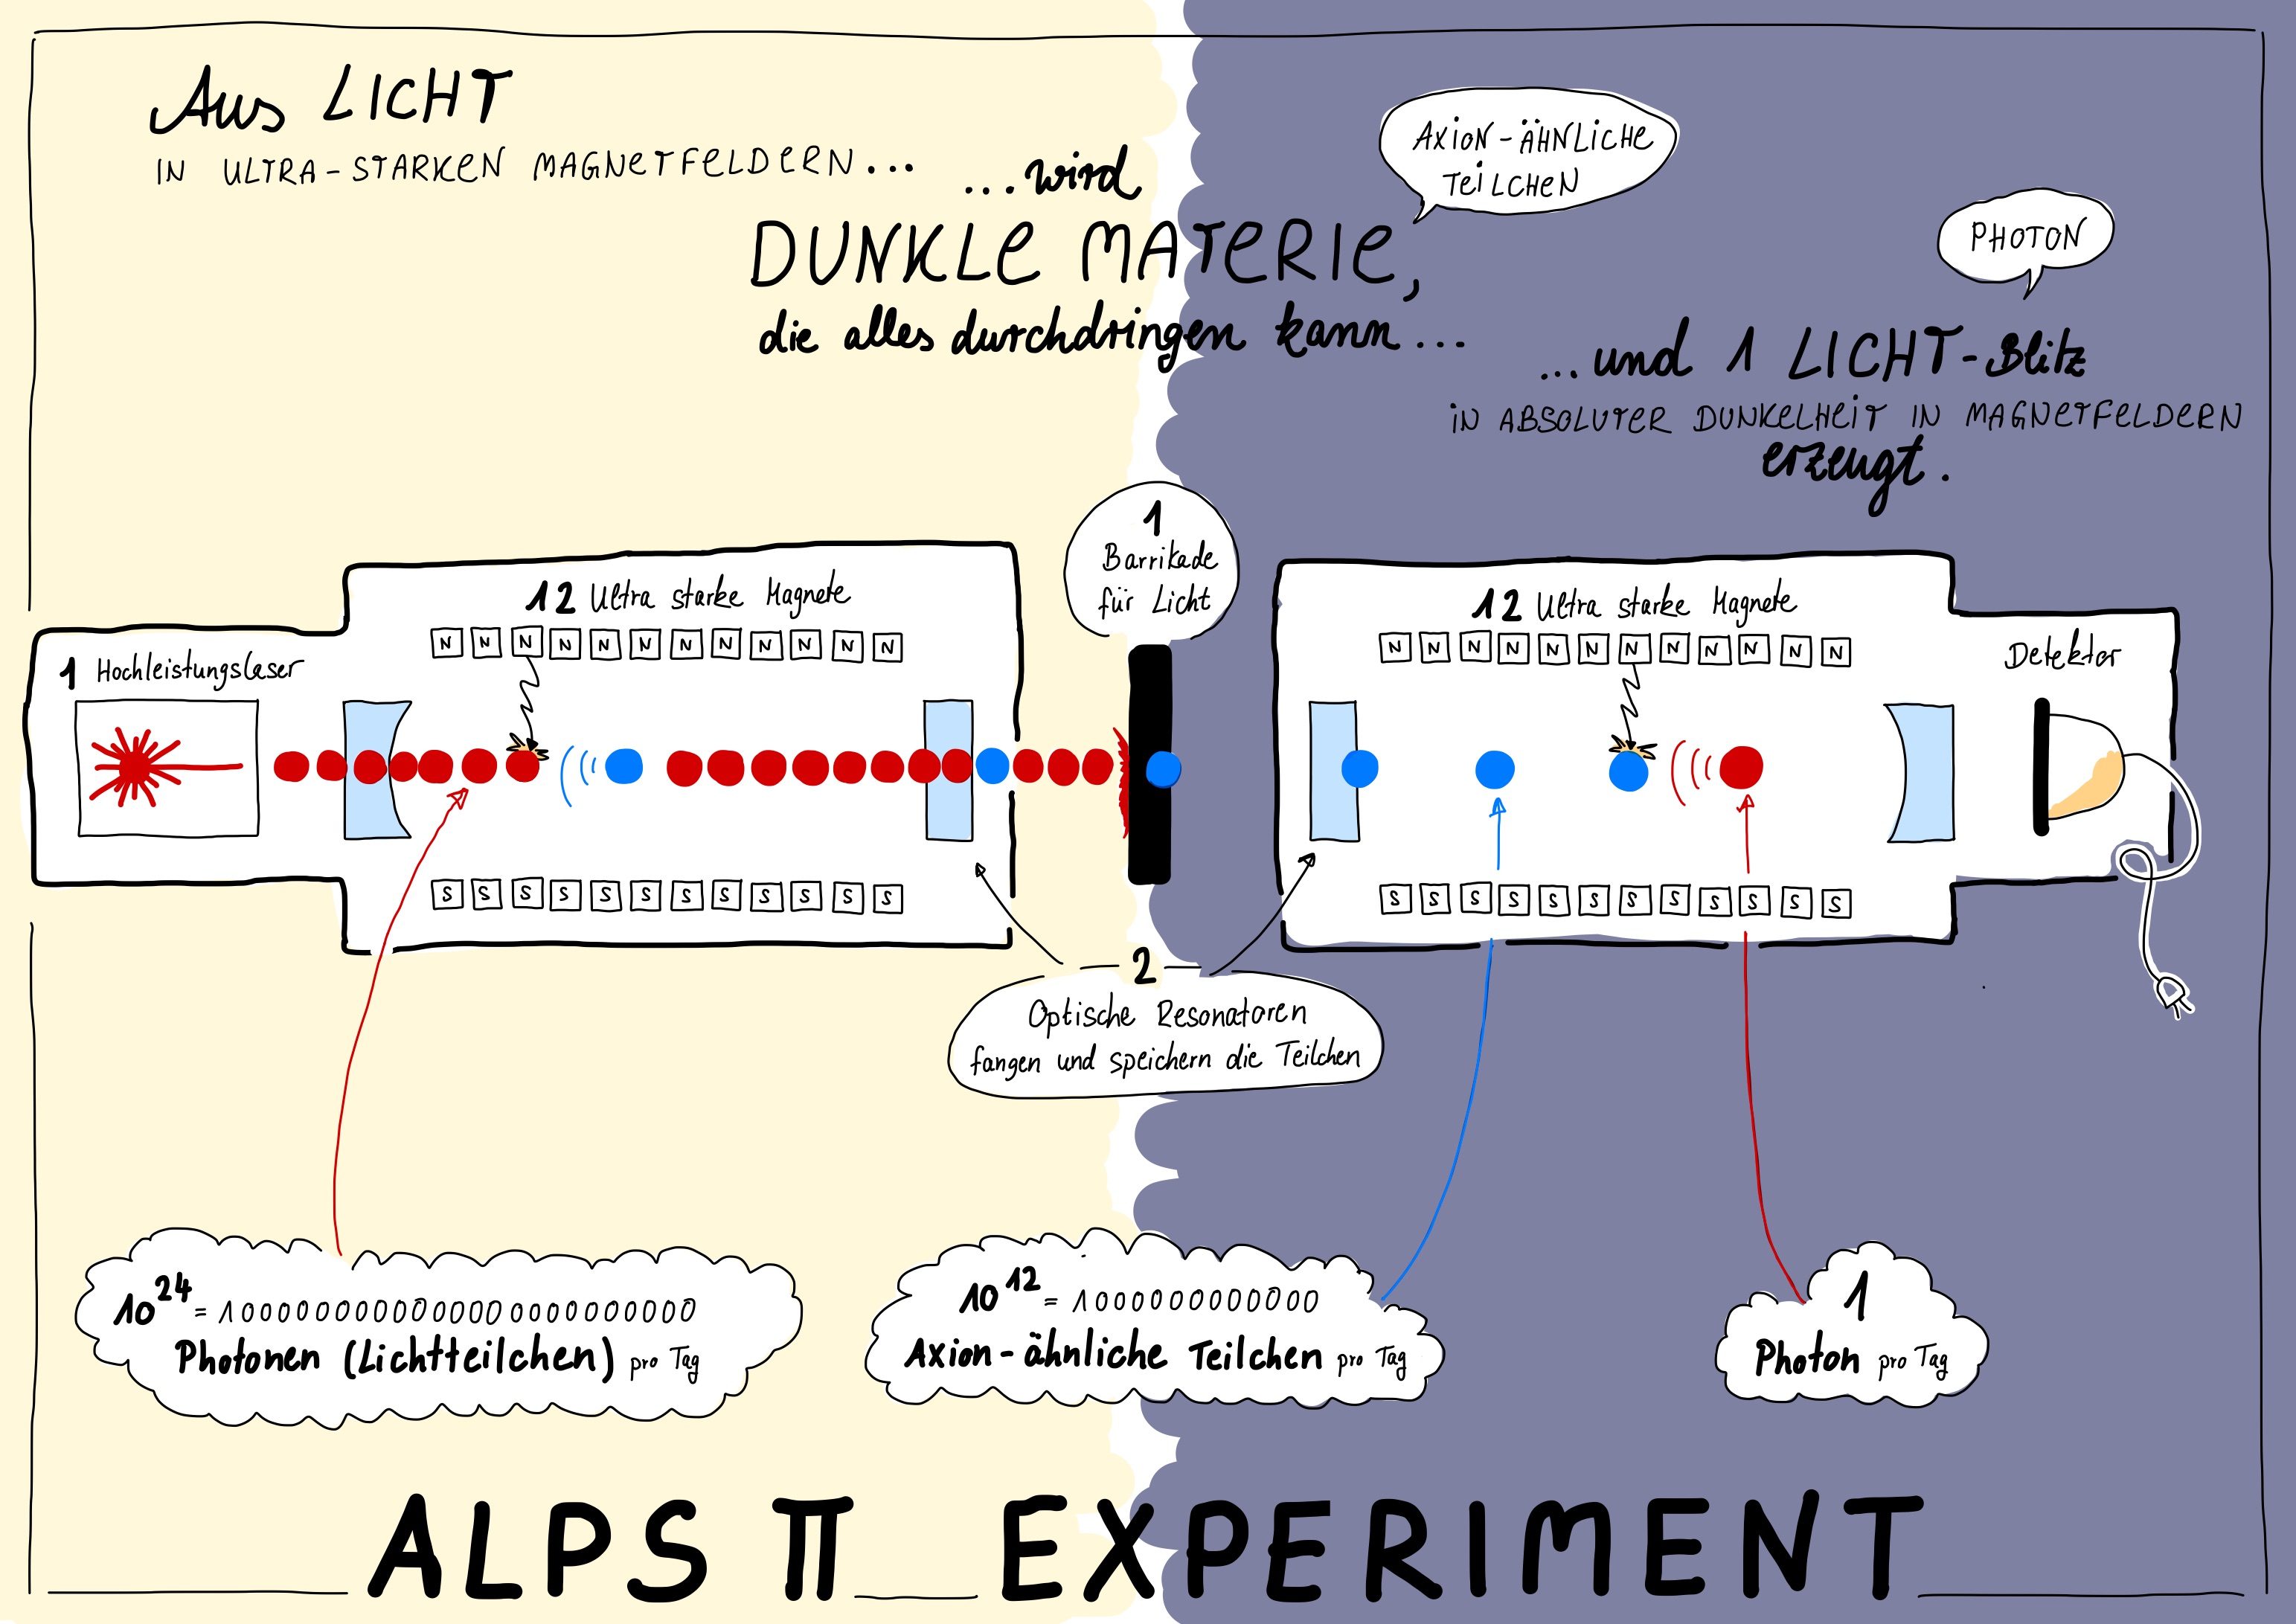 Aus LICHT
IN ULTRA-STARKEN MAGNETFELDERN...
...wird
DUNKLE MATERIE,
die alles durchdringen kann...
AXION-ÄHNLICHE
TEILCHEN
PHOTON
...und 1 LICHT-Blitz
IN ABSOLUTER DUNKELHEIT IN MAGNETFELDERN
erzeugt.
1 Hochleistungslaser
12 Ultra starke Magnete
N N N N N N N N N N N N
S S S S S S S S S S S S
1
Barrikade
für Licht
12 Ultra starke Magnete
N N N N N N N N N N N N
S S S S S S S S S S S S
Detektor
2
Optische Resonatoren
fangen und speichern die Teilchen
10²⁴ = 1000000000000000000000000
Photonen (Lichtteilchen) pro Tag
10¹² = 1000000000000
Axion-ähnliche Teilchen pro Tag
1
Photon pro Tag
ALPS II EXPERIMENT